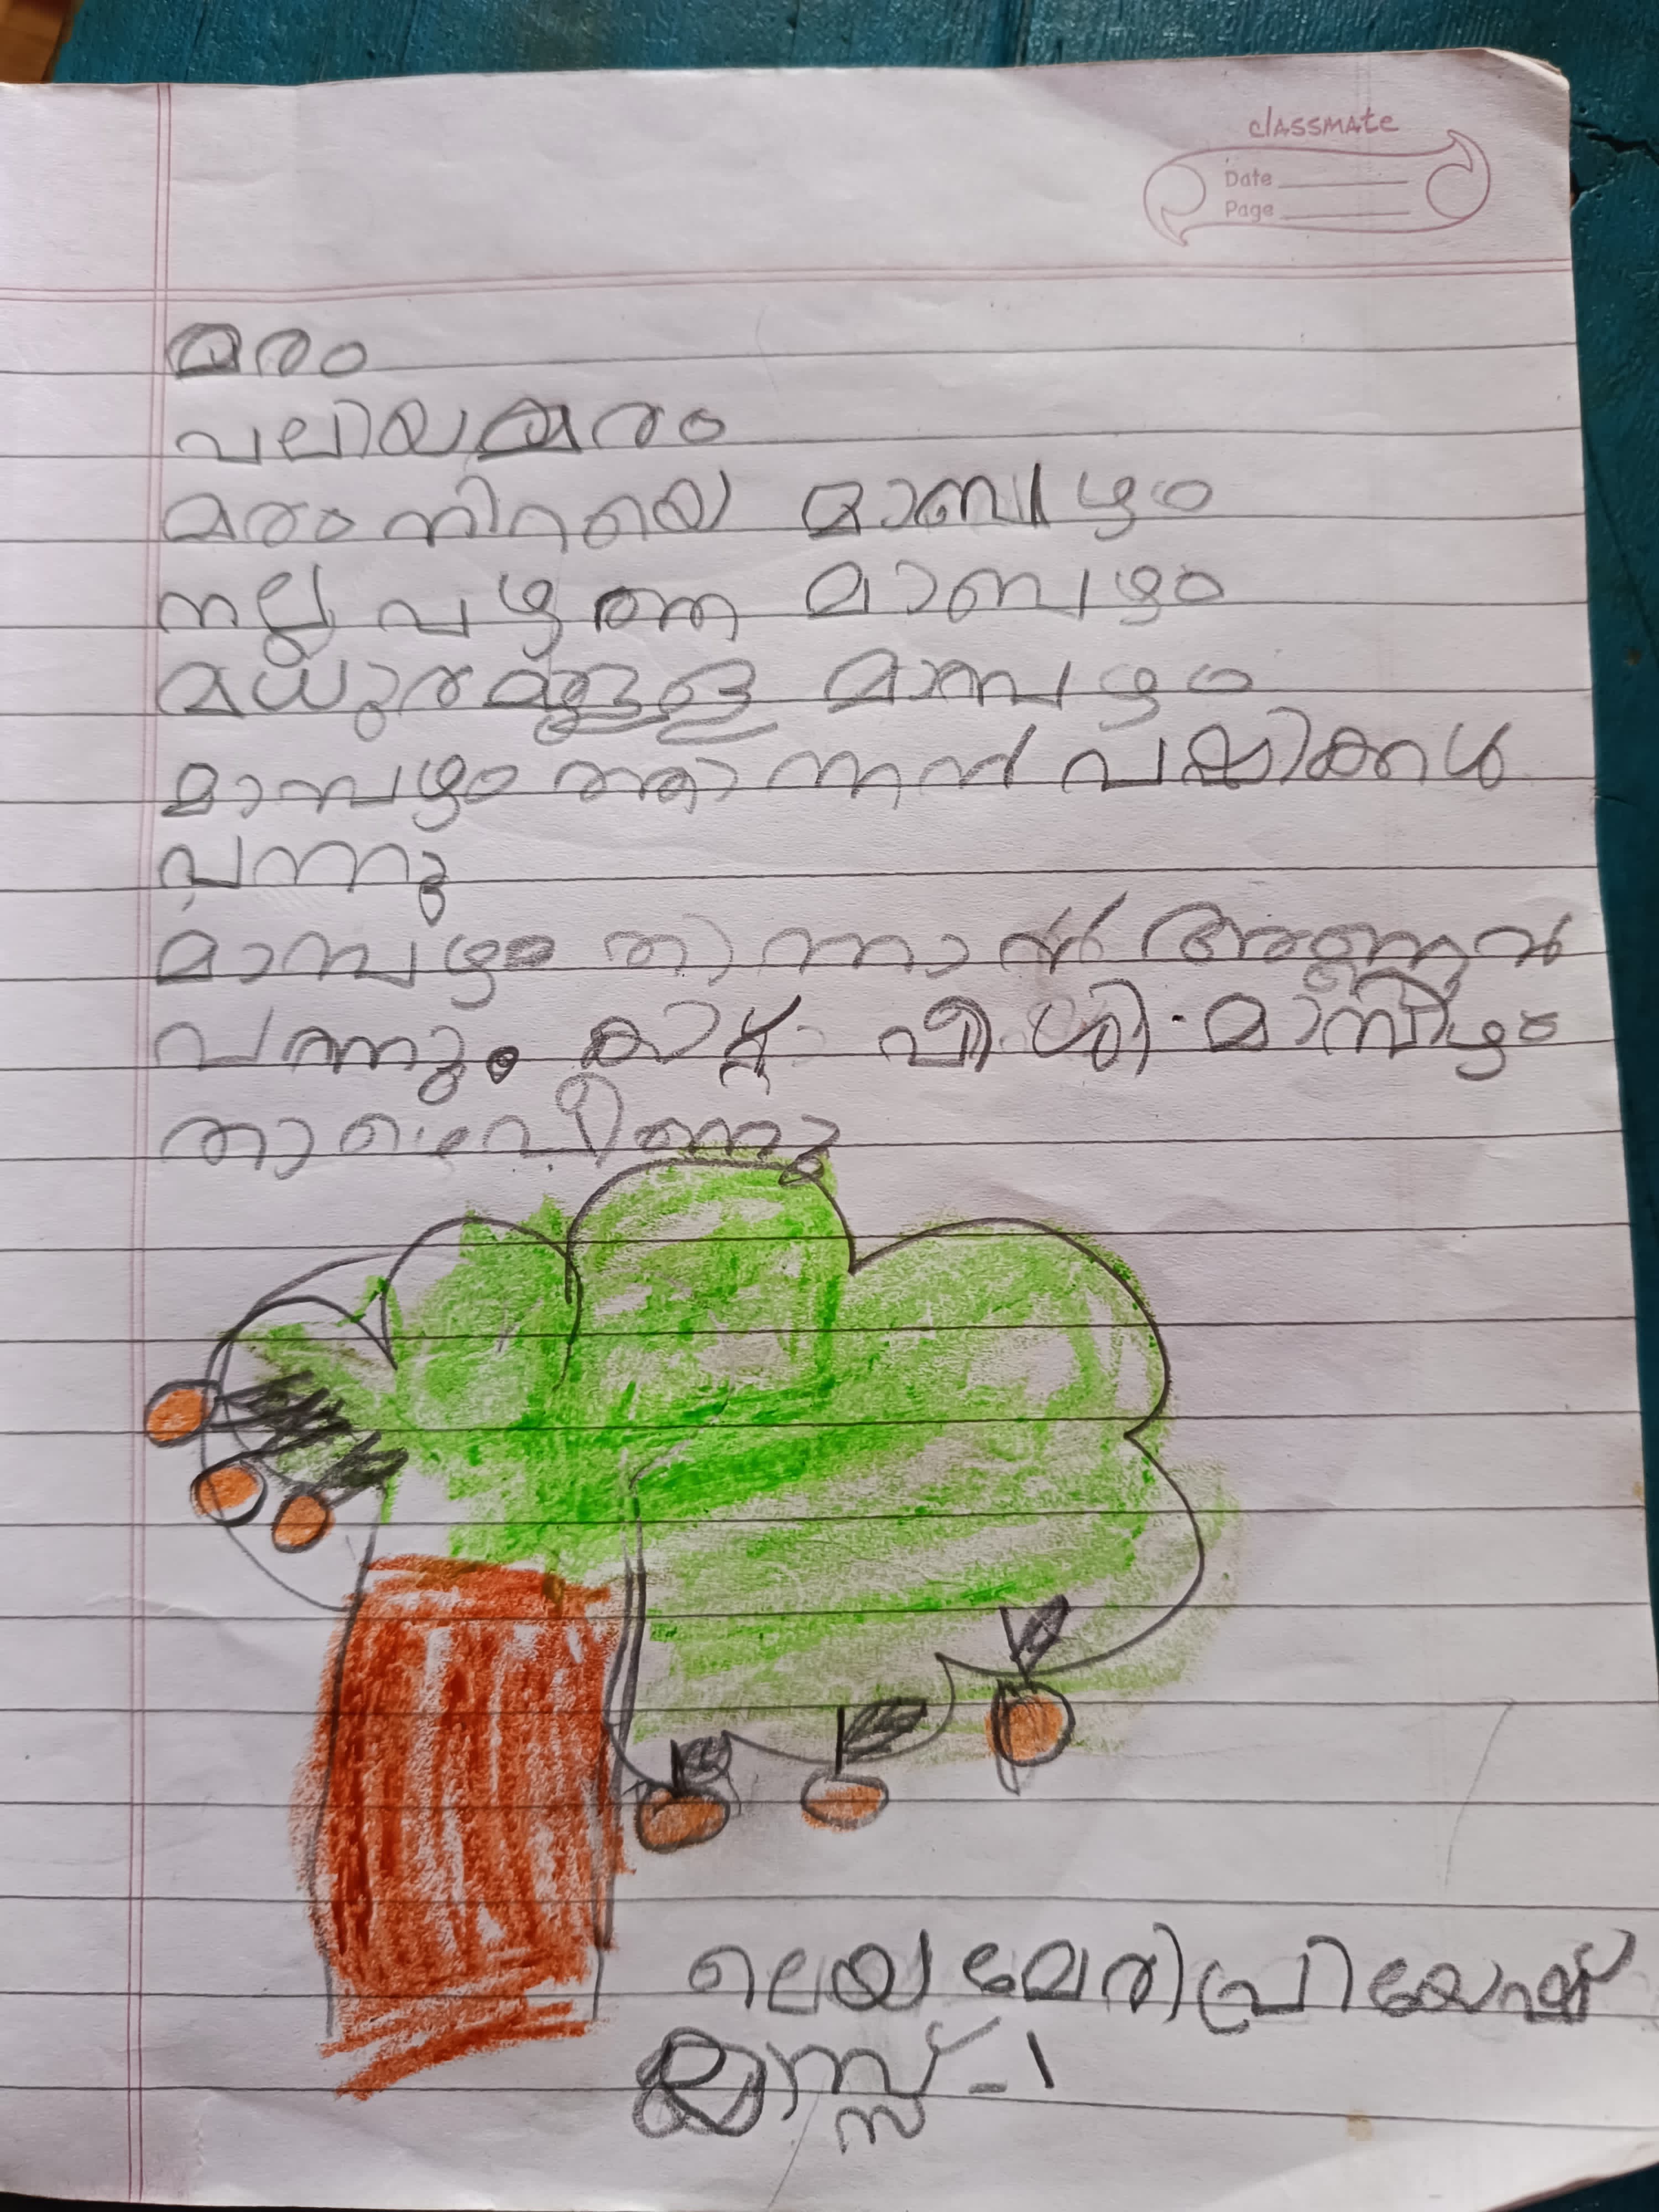 classmate
Date
Page
മരം
വലിയ മരം
മരം നിറയെ മാമ്പഴം
നല്ല പഴുത്ത മാമ്പഴം
മധുരമുള്ള മാമ്പഴം
മാമ്പഴം തിന്നാൻ പക്ഷികൾ
വന്നു
മാമ്പഴം തിന്നാൻ അണ്ണാൻ
വന്നു. കാറ്റ് വീശി. മാമ്പഴം
താഴെ വീണു
ലെയ മേരി പ്രിയേഷ്
ക്ലാസ്സ് - 1